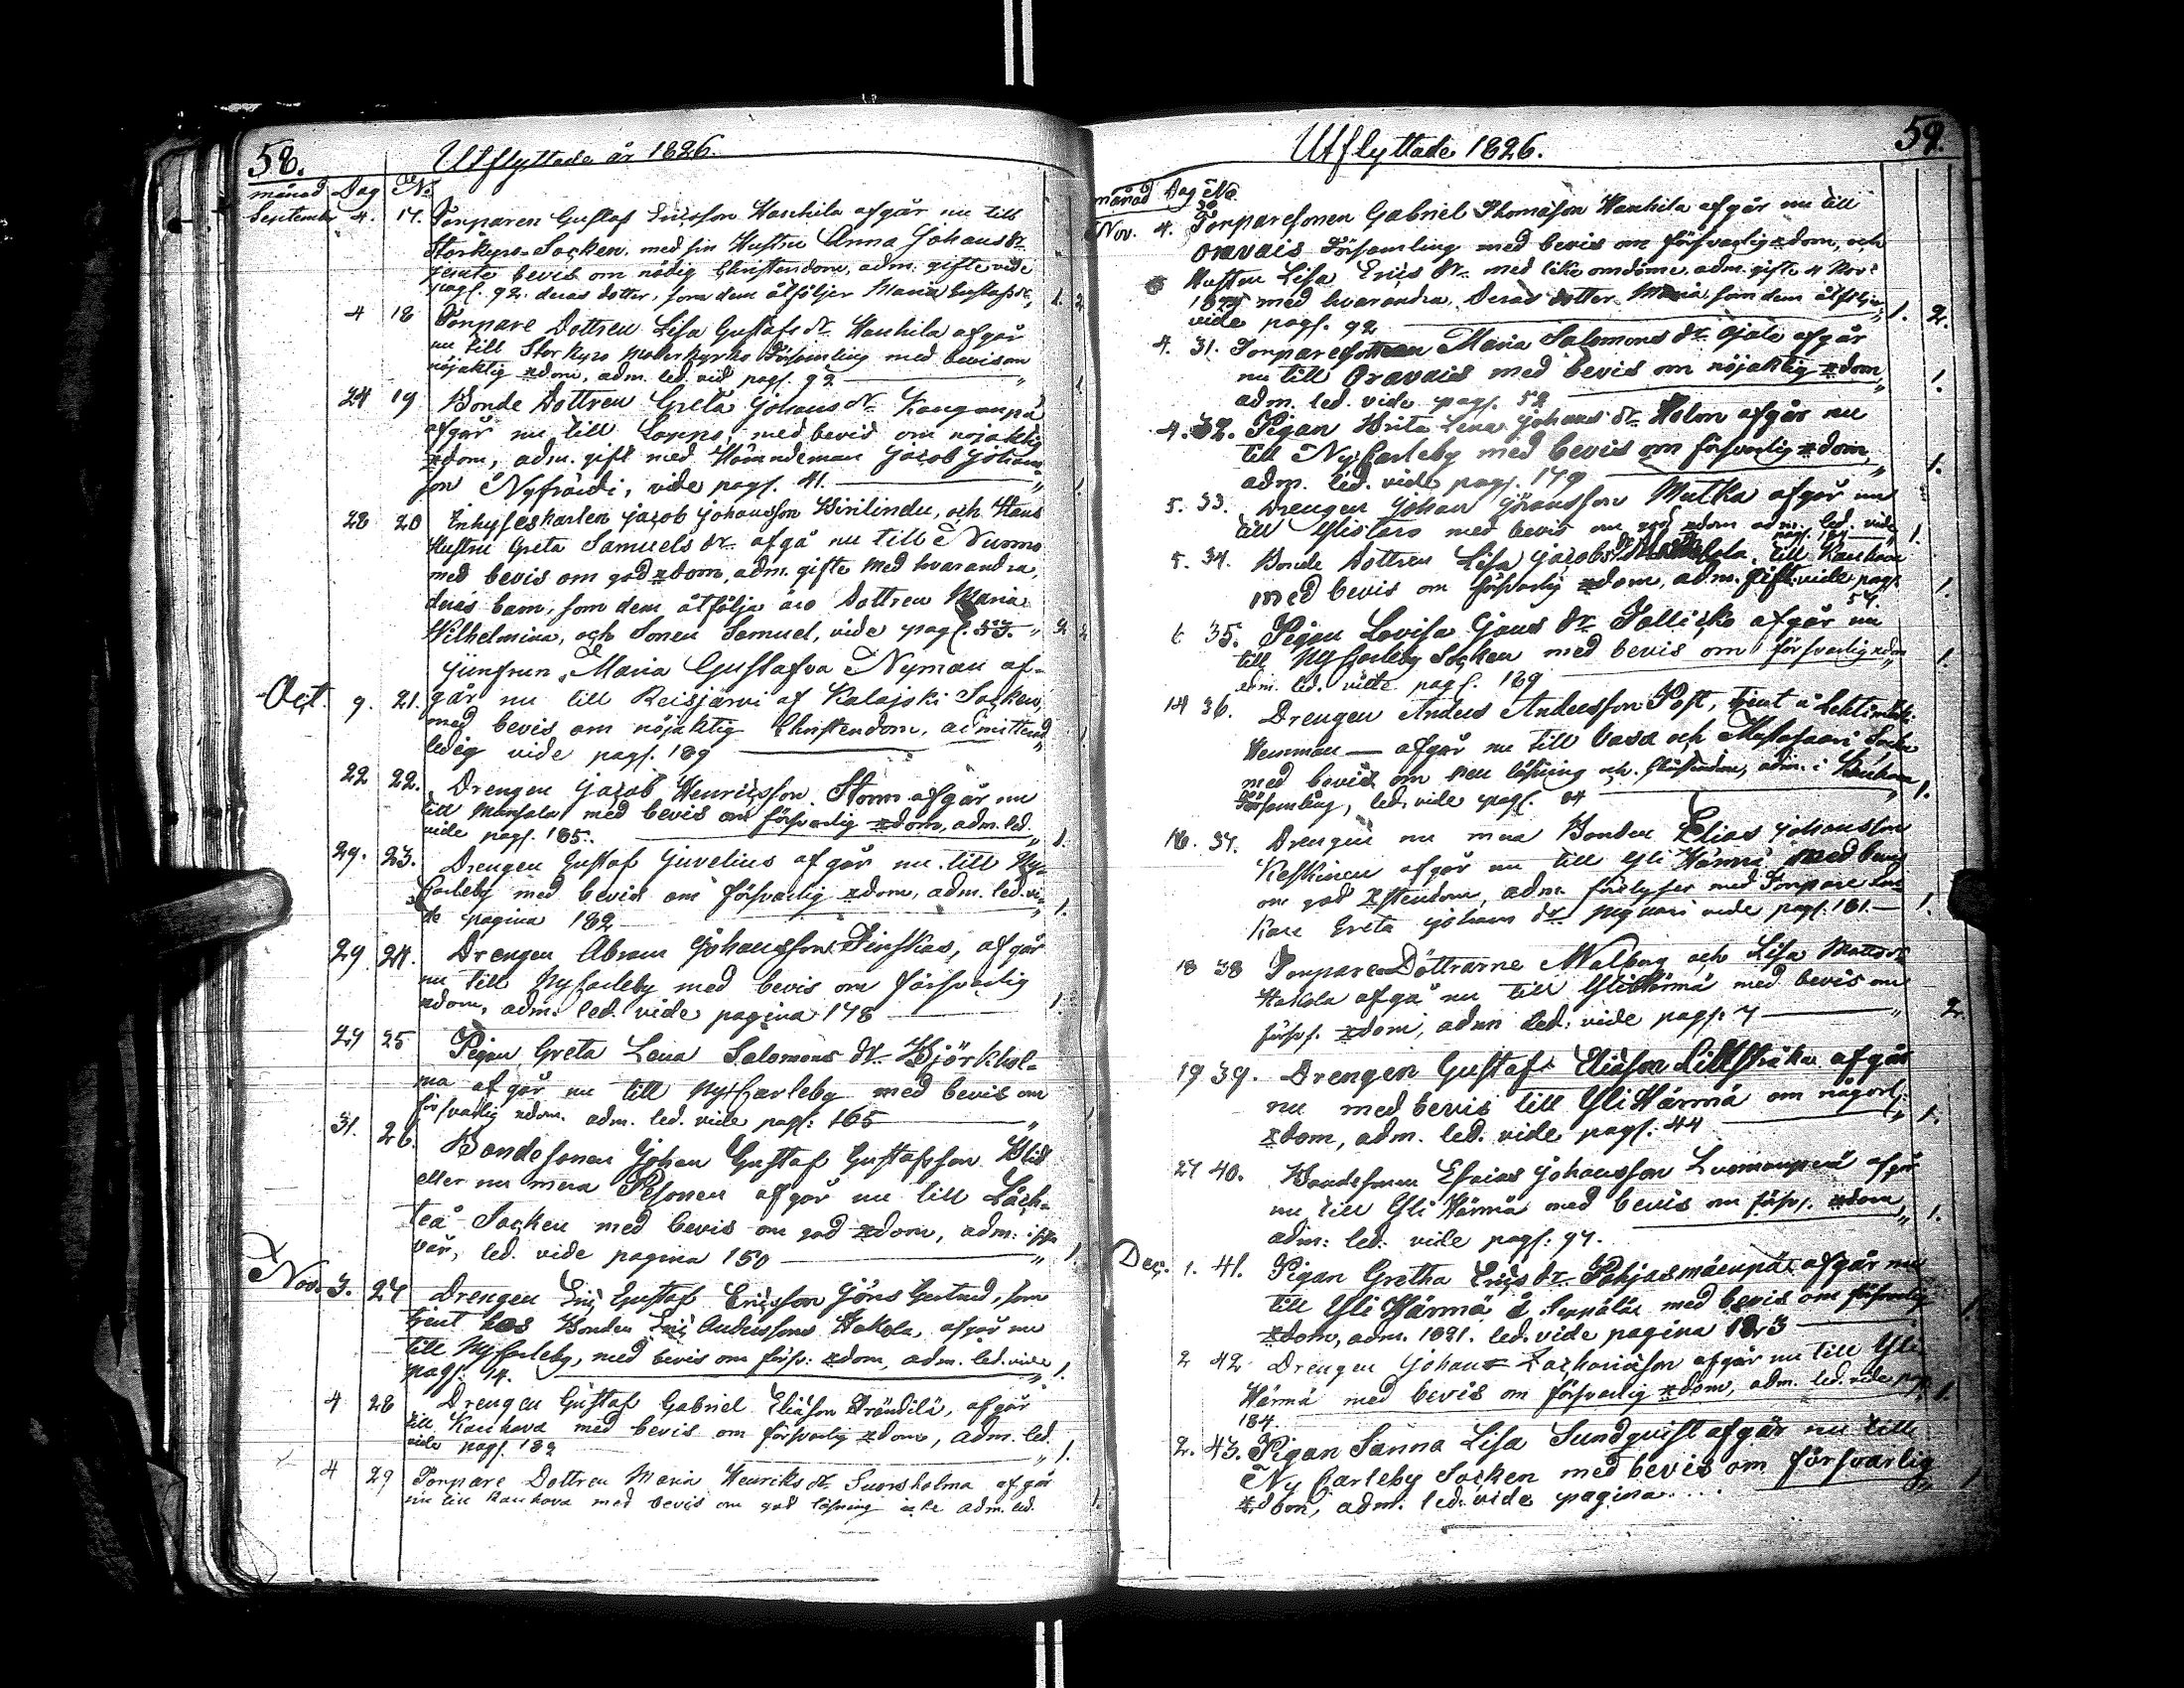 58.
Utflyttade år 1826.
månad Dag No
September 4. 17. Torparen Gustaf Ericsson Hanhila afgår nu till
Storkyro Socken, med sin Hustru Anna Johans dr
bevis om nödig Christendom, adm. gifte vide
pag. 92. deras dotter, som dem åtföljer Maria Gustafs dr " 1. 2
4 18 Torpare Dottren Lisa Gustafs dr Hanhila afgår
nu till Storkyro Moderkyrko Församling med bevis om
nöjaktig xdom, adm. led. vid pag. 92 " 1
24 19 Bonde Dottren Greta Johans dr Kanganpä
afgår nu till Lappo, med bevis om nöjaktig
xdom, adm. gift med Jacob Johans
son vide pag. 41. " 1.
28 20 Inhyseskarlen Jacob Johansson och Hans
Hustru Greta Samuels dr afgå nu till Nurmo
med bevis om god xdom, adm. gifte med hvarandra,
deras barn, som dem åtfölja äro Dottren Maria
Wilhelmina, och Sonen Samuel, vide pag. 53. " 2 2
Jungfrun Maria Gustafva Nyman af-
Oct. 9. 21. går nu till Reisjärvi af Kalajoki Socken,
med bevis om nöjaktig Christendom, admitterad
ledig vide pag. 189 " 1
22 22. Drengen Jacob Henricsson Storm afgår nu
till Munsala med bevis om försvarlig xdom, adm. led.
vide pag. 185. " 1.
29. 23. Drengen Gustaf Juvelius afgår nu till Ny-
Carleby med bevis om försvarlig xdom, adm. led. vi-
de pagina 182 " 1.
29 24. Drengen Abram Johansson afgår
nu till Nycarleby med bevis om försvarlig
xdom, adm. led. vide pagina 178 1.
29 25 Pigan Greta Lena Salomons dr Björkhol-
ma afgår nu till Nycarleby med bevis om
försvarlig xdom. adm. led. vide pag: 165 " 1
31. 26. Bondesonen Johan Gustaf Gustafsson
eller nu mera Pesonen afgår nu till Loch-
teå Socken med bevis om god xdom, adm.
led. vide pagina 150 " 1.
Nov. 3. 27 Drengen Eric Gustaf Ericsson som
tjent hos Bonden Eric Andersson Hakola, afgår nu
till Nycarleby, med bevis om försv: xdom, adm. led. vide
pag. 14. " 1.
4 28 Drengen Gustaf Gabriel Eliason afgår
till Kauhava med bevis om försvarlig xdom, adm. led.
vide pag. 189 " 1.
4 29 Torpare Dottren Maria Henriks dr afgår
nu till Kauhava med bevis om god läsning adm. led. 1.
59.
Utflyttade 1826.
månad Dag No
Nov. 4. 30 Torparesonen Gabriel Thomason Hanhila afgår nu till
Oravais Församling med bevis om försvarlig xdom, och
Hustru Lisa Erics dr med like omdöme, adm. gifte 4 Nov:
med hvarandra. Deras dotter Maria som dem åtföljer
vide pag. 92 " 1. 2.
4. 31. Torparedottren Maria Salomons dr Ojala afgår
nu till Oravais med bevis om nöjaktig xdom
adm. led. vide pag. 52 " 1.
4. 32. Pigan Brita Lena Johans dr Holm afgår nu
till Ny Carleby med bevis om försvarlig xdom,
adm. led. vide pag. 179 " 1.
5. 33. Drengen Johan Johansson Mutka afgår nu
till Ylistaro med bevis om god xdom adm. led. vide
" 1.
5. 34. Bonde Dottren Lisa Jacobs dr till Kauhava
med bevis om försvarlig xdom, adm. gift. vide pag. 1.
57.
6 35. Pigan Lovisa Jans dr afgår nu
till Ny Carleby Socken med bevis om försvarlig xdom
adm. led. vide pag. 189 " 1.
14 36. Drengen Anders Andersson Post, tjent å
Hemman — afgår nu till Vasa och Mustasaari Socken
med bevis om ren läsning och Christendom, adm. i Kauhava
Församling, led. vide pag. 84 " 1.
16. 37. Drengen nu mera Bonden Elias Johansson
Keskinen afgår nu till Yli Härmä med bevis
om god xstendom, adm. förelyser med Torpare
Greta Johans dr vide pag. 181. 1.
18 38 Torpare Döttrarne Malborg och Lisa Matts dr
Hakola afgå nu till Yli Härmä med bevis om
försv. xdom, adm led. vide pag. 7 " 2.
19 39. Drengen Gustaf Eliason afgår
nu med bevis till Yli Härmä om någorl:
xdom, adm. led. vide pag. 44 " 1.
27 40. Bondesonen Esaias Johansson Luomanpää afgår
nu till Yli Härmä med bevis om försv. xdom
adm: led: vide pag: 97. " 1.
Dec. 1. 41. Pigan Gretha Erics dr afgår nu
till Yli Härmä å Seppälä med bevis om försvarlig
xdom, adm. 1821. led. vide pagina 1.
2 42 Drengen Johan Zachariason afgår nu till Yli
Härmä med bevis om försvarlig xdom, adm. led. vide pag.
184. 1.
2. 43. Pigan Sanna Lisa Sundqvist afgår nu till
Ny Carleby Socken med bevis om försvarlig
xdom, adm. led. vide pagina.... 1.